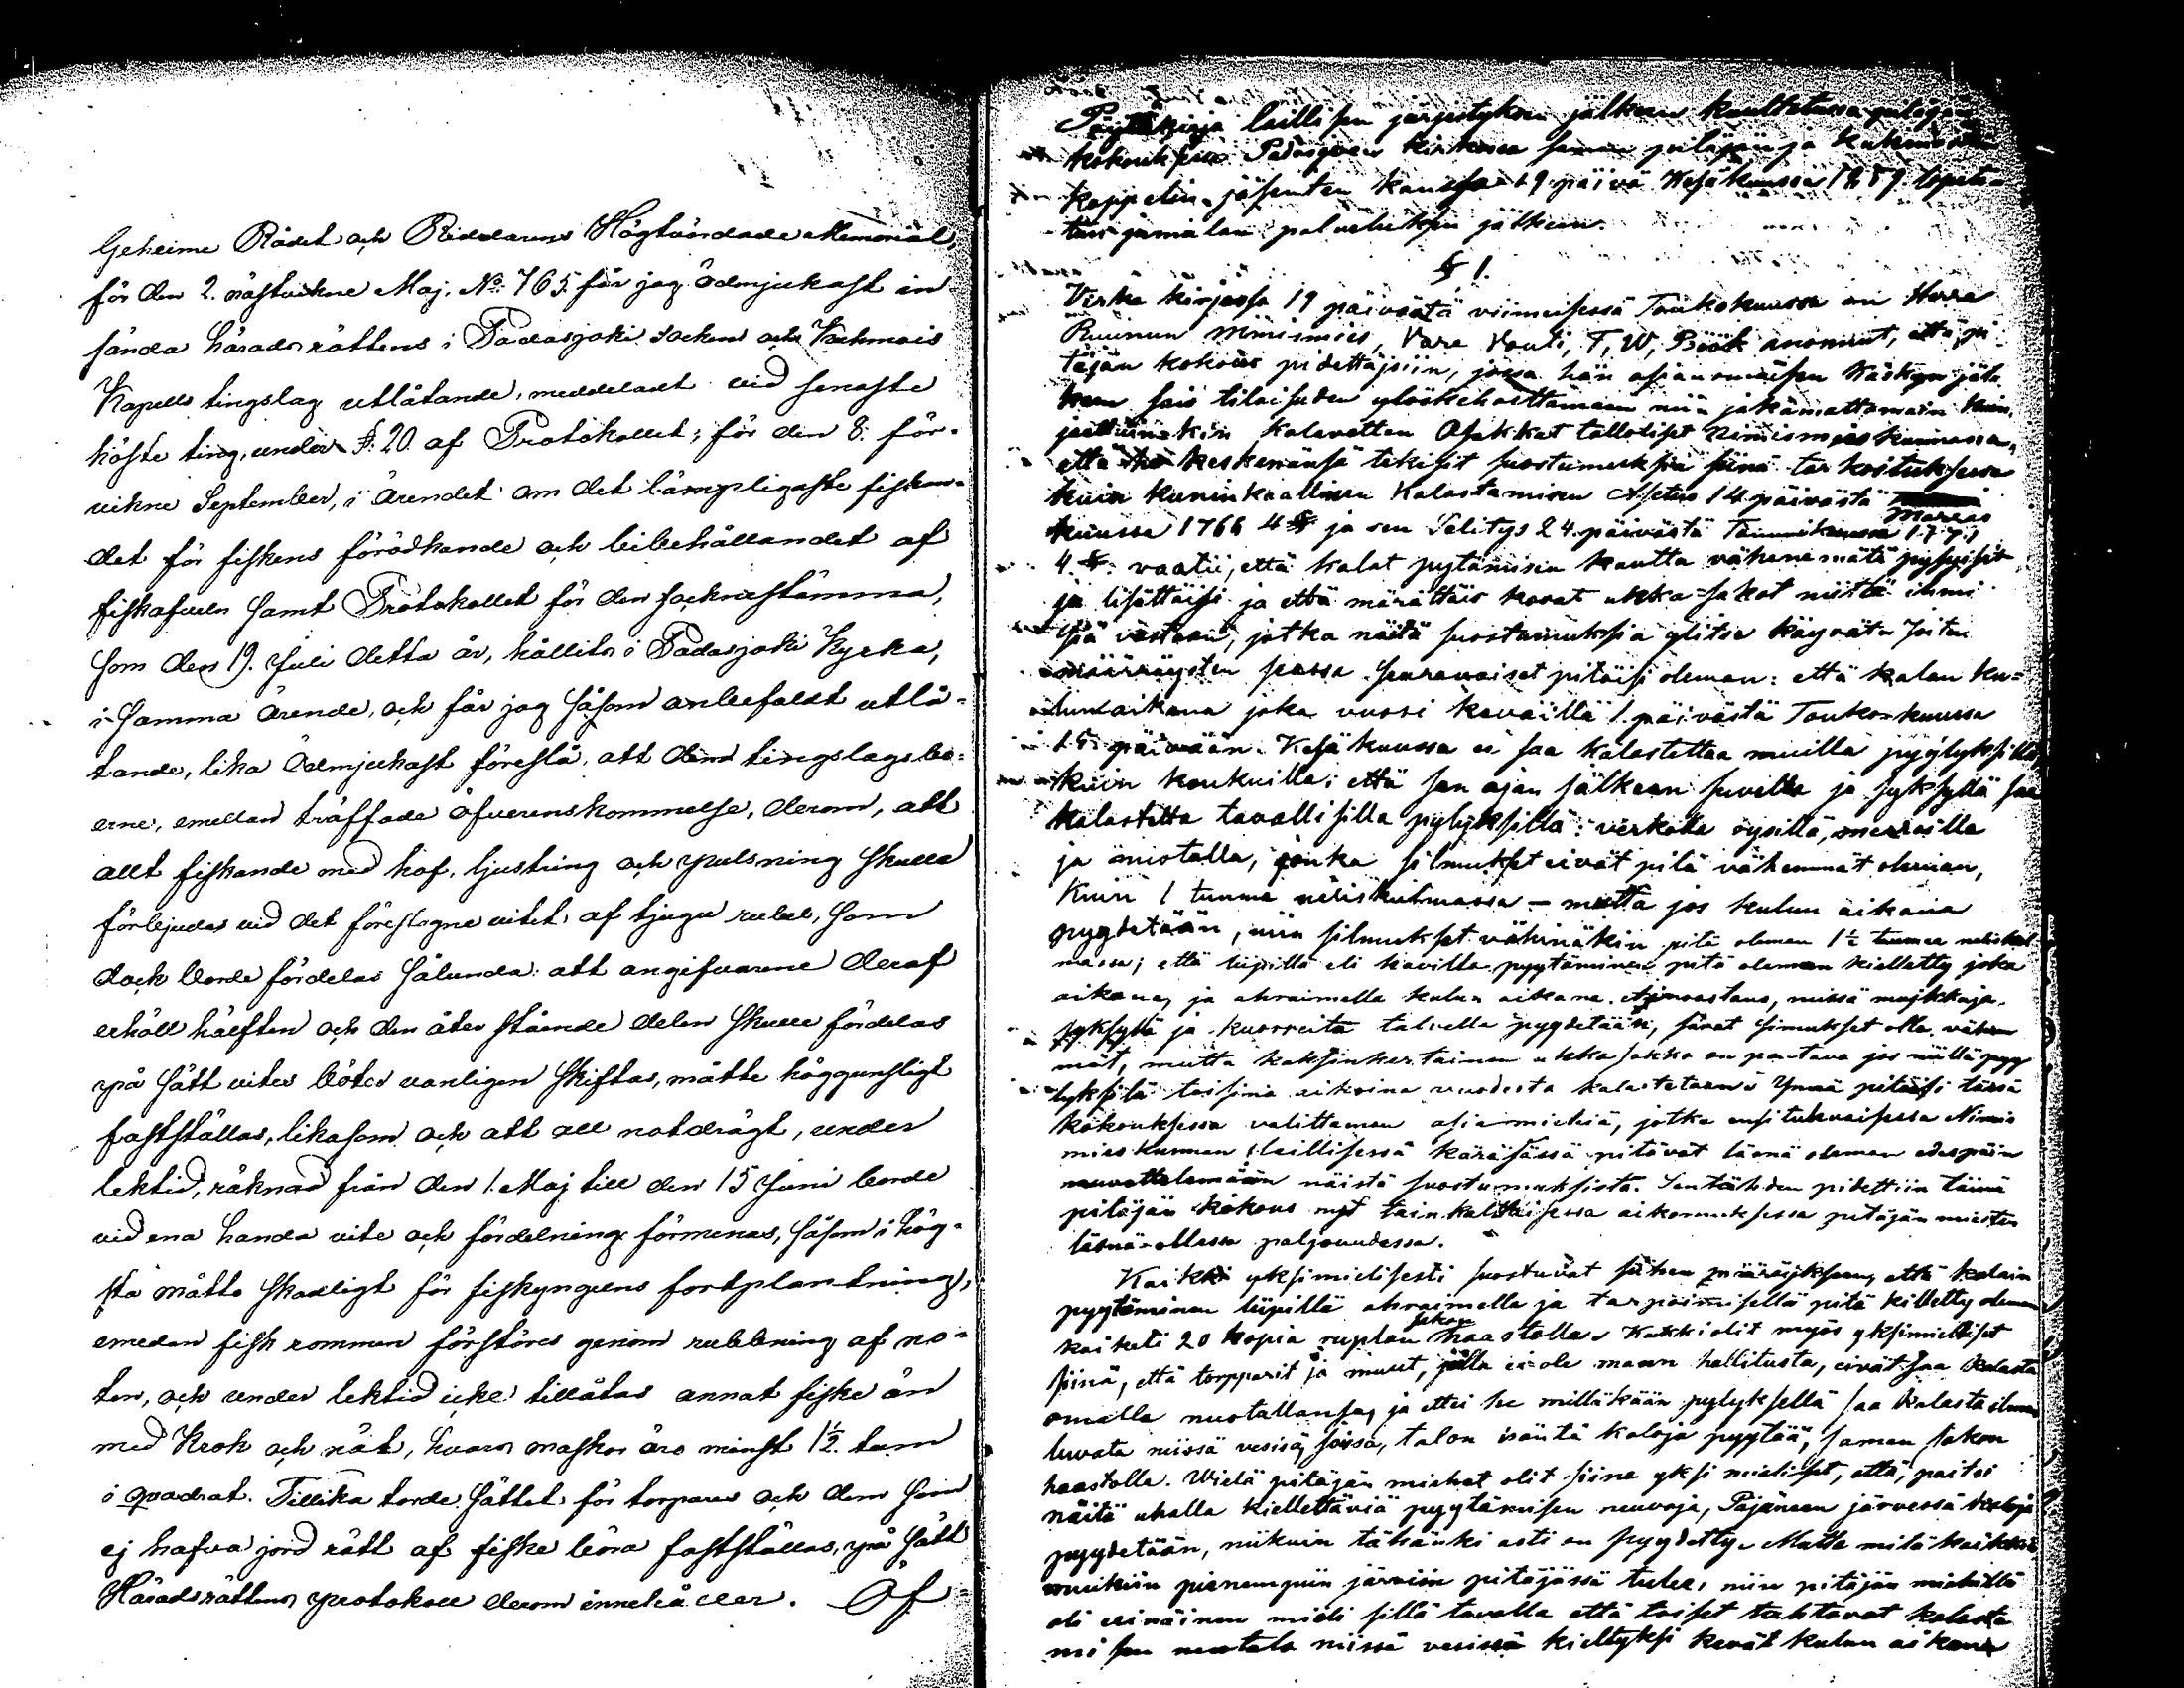 Geheime Rådet och Riddarens Högtvördade Memorial,
för den 2. nästvikne Maj, No. 765. får jag ödmjukast in
sända häradsrättens i Padasjoki socken och Kuhmois
Kapells tingslag utlåtande, meddeladt vid senaste
höste ting, under §. 20. af Protokollet; för den 8. för-
vikne September, i ärendet om det lämpligaste fiskan-
det för fiskens förödkande och bibehållandet af
fiskafveln samt Protokollet för den sockenstämma,
som den 19. Juli detta år, hållits i Padasjoki Kyrka,
i samma ärende, och får jag såsom anbefaldt utlå-
tande, lika ödmjukast föreslå, att dem tingslagsbo-
erne, emellan träffade öfverenskommelse, derom, att
allt fiskande med hof, ljustring och pulsning skulle
förbjudas vid det föreslagne vitet, af tjugu rubel, som
dock borde fördelas sålunda: att angifvarene deraf
erhöll hälften och den återstående delen skulle fördelas
på sätt vites böter vanligen skiftas, måtte höggunstligt
fastställas, likasom och att all notdrägt, under
lektid, räknad från den 1. Maj till den 15 Juni borde
vid ena handa vite och fördelning förmenas, såsom i hög-
sta måtto skadligt för fiskyngens fortplantning,
emedan fisk rommen förstöres genom rubbning af no-
ten, och under lektid icke tillåtas annat fiske än
med Krok och nät, hvars maskor äro minst 1½. tum
i quadrat. Tillika torde sättet för torpares och dem som
ej hafva jord rätt af fiske böra fastställas, på sätt
Häradsrättens protokoll derom innehåller. Öf-
Pöytäkirja laillisen järjestyksen jälkeen kuullutussa pitäjän
kokouksessa Padasjoen kirkossa saman pitäjän ja Kuhmoisten
kappelin jäsenten kanssa 19 päivä Kesäkuussa 1859 lopete-
tun jumalan palveluksen jälkeen.
§ 1.
Virka kirjassa 19 päivästä viimeisessä Toukokuussa on Herra
Ruunun Nimismies, Vara Vouti, T, W, Böök anonnut, että pi
täjän kokous pidettäisiin, jossa hän asianomaisen Käskyn jäl-
keen sais tilaisuden ylöskehoittamaan niin jakamattomain kuin
jaettuinkin kalavetten Osakkat tallodiset Nimismieskunnassa,
että he keskenänsä tekisit suostumuksia siinä tarkoituksessa
kuin kuninkaallinen Kalastamisen Asetus 14 päivästä
Marras
kuussa 1766 4 § ja sen Selitys 24. päivästä Tammikuussa 1771
4. §: vaatii, että kalat pytämisen kautta vähenemätä pysyisit
ja lisättäisi ja että märättäis kovat uhka=sakot niittä ihmi
siä vastaan, jotka näitä suostumuksia ylitse käyvät. Joiten
määräysten seassa seuravaiset pitäisi oleman: että kalan ku=
tun aikana joka vuosi keväillä 1. päivästä Toukokuussa
15 päivään Kesäkuussa ei saa kalastettaa muilla pyydyksillä,
kuin koukuilla; että sen ajan jälkeen suvella ja syksyllä saa
kalastetta tavallisilla pydyksillä: verkolla rysillä, merroilla
ja nuotalla, jonka silmukset eivät pitä vähemmät oleman,
Kuin 1 tuuma neliskulmassa – mutta jos kutun aikana
pyydetään, niin silmukset vähinäkin pitä oleman 1½ tuumaa neliskul
massa; että lipillä eli havilla pyytäminen pitä oleman kielletty joka
aikana, ja ahraimella kutun aikana. Ainoastans, missä mujkkuja
syksyllä ja kuorreita talvella pyydetään, saavat silmukset olla vähem
mät, mutta kaksinkertainen uhka sakko on pantava jos niillä pyy
dyksilä toisina aikoina vuodesta kalastetaan. Ynnä pitäisi tässä
kokouksessa valittaman asiamiehiä, jotka ensi tulevaisessa Nimis
mieskunnan laillisessä käräjässä pitävät läsnä oleman edespäin
muuttelemään näistä suostumuksista. Sentähden pidettiin tämä
pitäjän kokous nyt tainkaltaisessa aikomuksessa pitäjän miesten
läsnä=ollessa paljoudessa.
Kaikki yksimielisesti suostuvat siihen määräykseen, että kalain
pyytäminen lipillä ahraimella ja tarpoimisella pitä kielletty oleman
sakon
kaiketi 20 hopia ruplan haastolla. Kaikki olit myös yksimieliset
siinä, että torpparit ja muut, jolla ei ole maan hallitusta, eivät saa kalasta
omalla nuotallansa, ja ettei he milläkään pydyksellä saa kalasta ilman
luvata niissä vesisä, joissa, talon isäntä kaloja pyytää, saman sakon
haastolla. Wielä pitäjän miehet olit siine yksi mieliset, että, paitsi
näitä uhalla kiellettäviä pyytämisen neuvoja, Päjäneen järvessä kaloja
pyydetään, niikuin tähänki asti on pyydetty. Mutta mitä kaikkiin
muihiin pienempiin järviin pitäjässä tulee, niin pitäjän miehillä
oli erinäinen mieli sillä tavalla että toiset tahtovat kalasta
misen nuotala niissä vesissä kieltyksi kevät kutun aikana